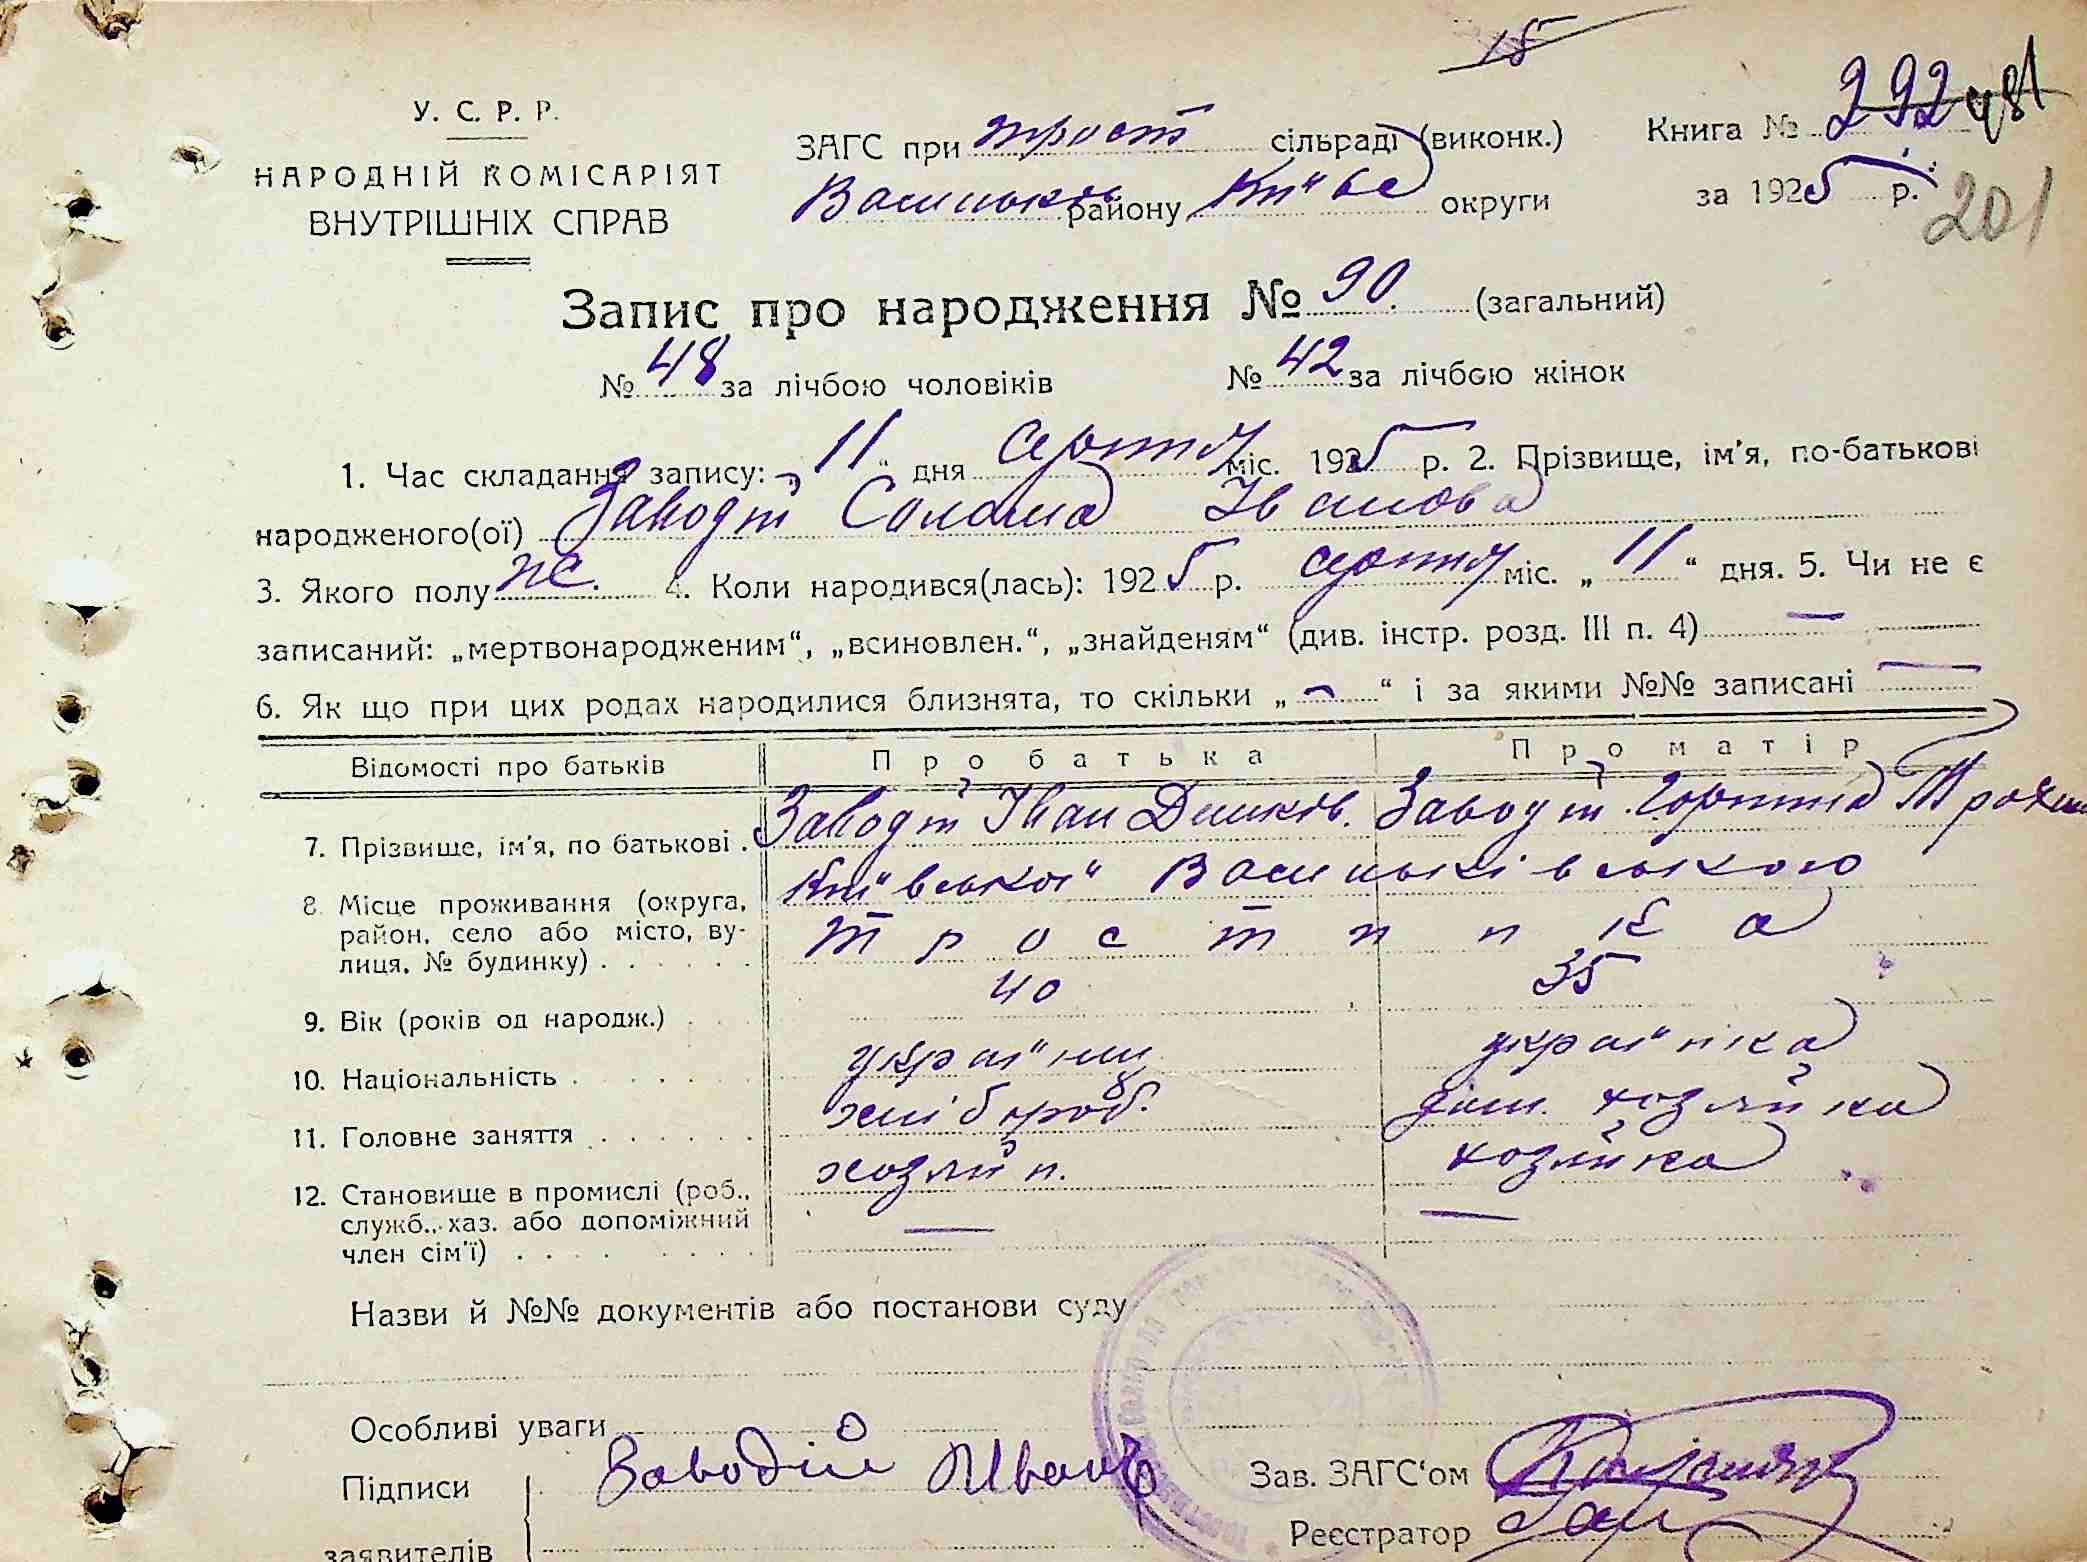 15
У. С. Р. Р.
НАРОДНІЙ КОМІСАРІЯТ
ВНУТРІШНІХ СПРАВ
ЗАГС при Трост сільраді (виконк.)
Васильків району Київс округи
Книга № 292 481
за 1925 р. 201
Запис про народження № 90. (загальний)
№ 48 за лічбою чоловіків № 42 за лічбою жінок
1. Час складання запису: „ 11 “ дня серпня міс. 1925 р. 2. Прізвище, ім'я, по-батькові
народженого(ої) Заводій Солома Іванова
3. Якого полу ж. 4. Коли народився(лась): 1925 р. серпня міс. „ 11 “ дня. 5. Чи не є
записаний: „мертвонародженим“, „всиновлен.“, „знайденям“ (див. інстр. розд. III п. 4) —
6. Як що при цих родах народилися близнята, то скільки „ — “ і за якими №№ записані —
Відомості про батьків Про батька Про матір
7. Прізвище, ім'я, по батькові . Заводій Іван Заводій Горпина
8. Місце проживання (округа, Київської Васильківського
район, село або місто, ву- Тростинка
лиця, № будинку) . . . . . .
9. Вік (років од народж.) . . . 40 35
10. Національність . . . . . . українц українка
11. Головне заняття . . . . . . хлібороб. дом. хозяйка
12. Становище в промислі (роб., хозяйн. хозяйка
служб., хаз. або допоміжний — —
член сім'ї) . . . . . . . .
Назви й №№ документів або постанови суду
Особливі уваги
Підписи Заводій Иван Зав. ЗАГС‘ом
Реєстратор
заявителів